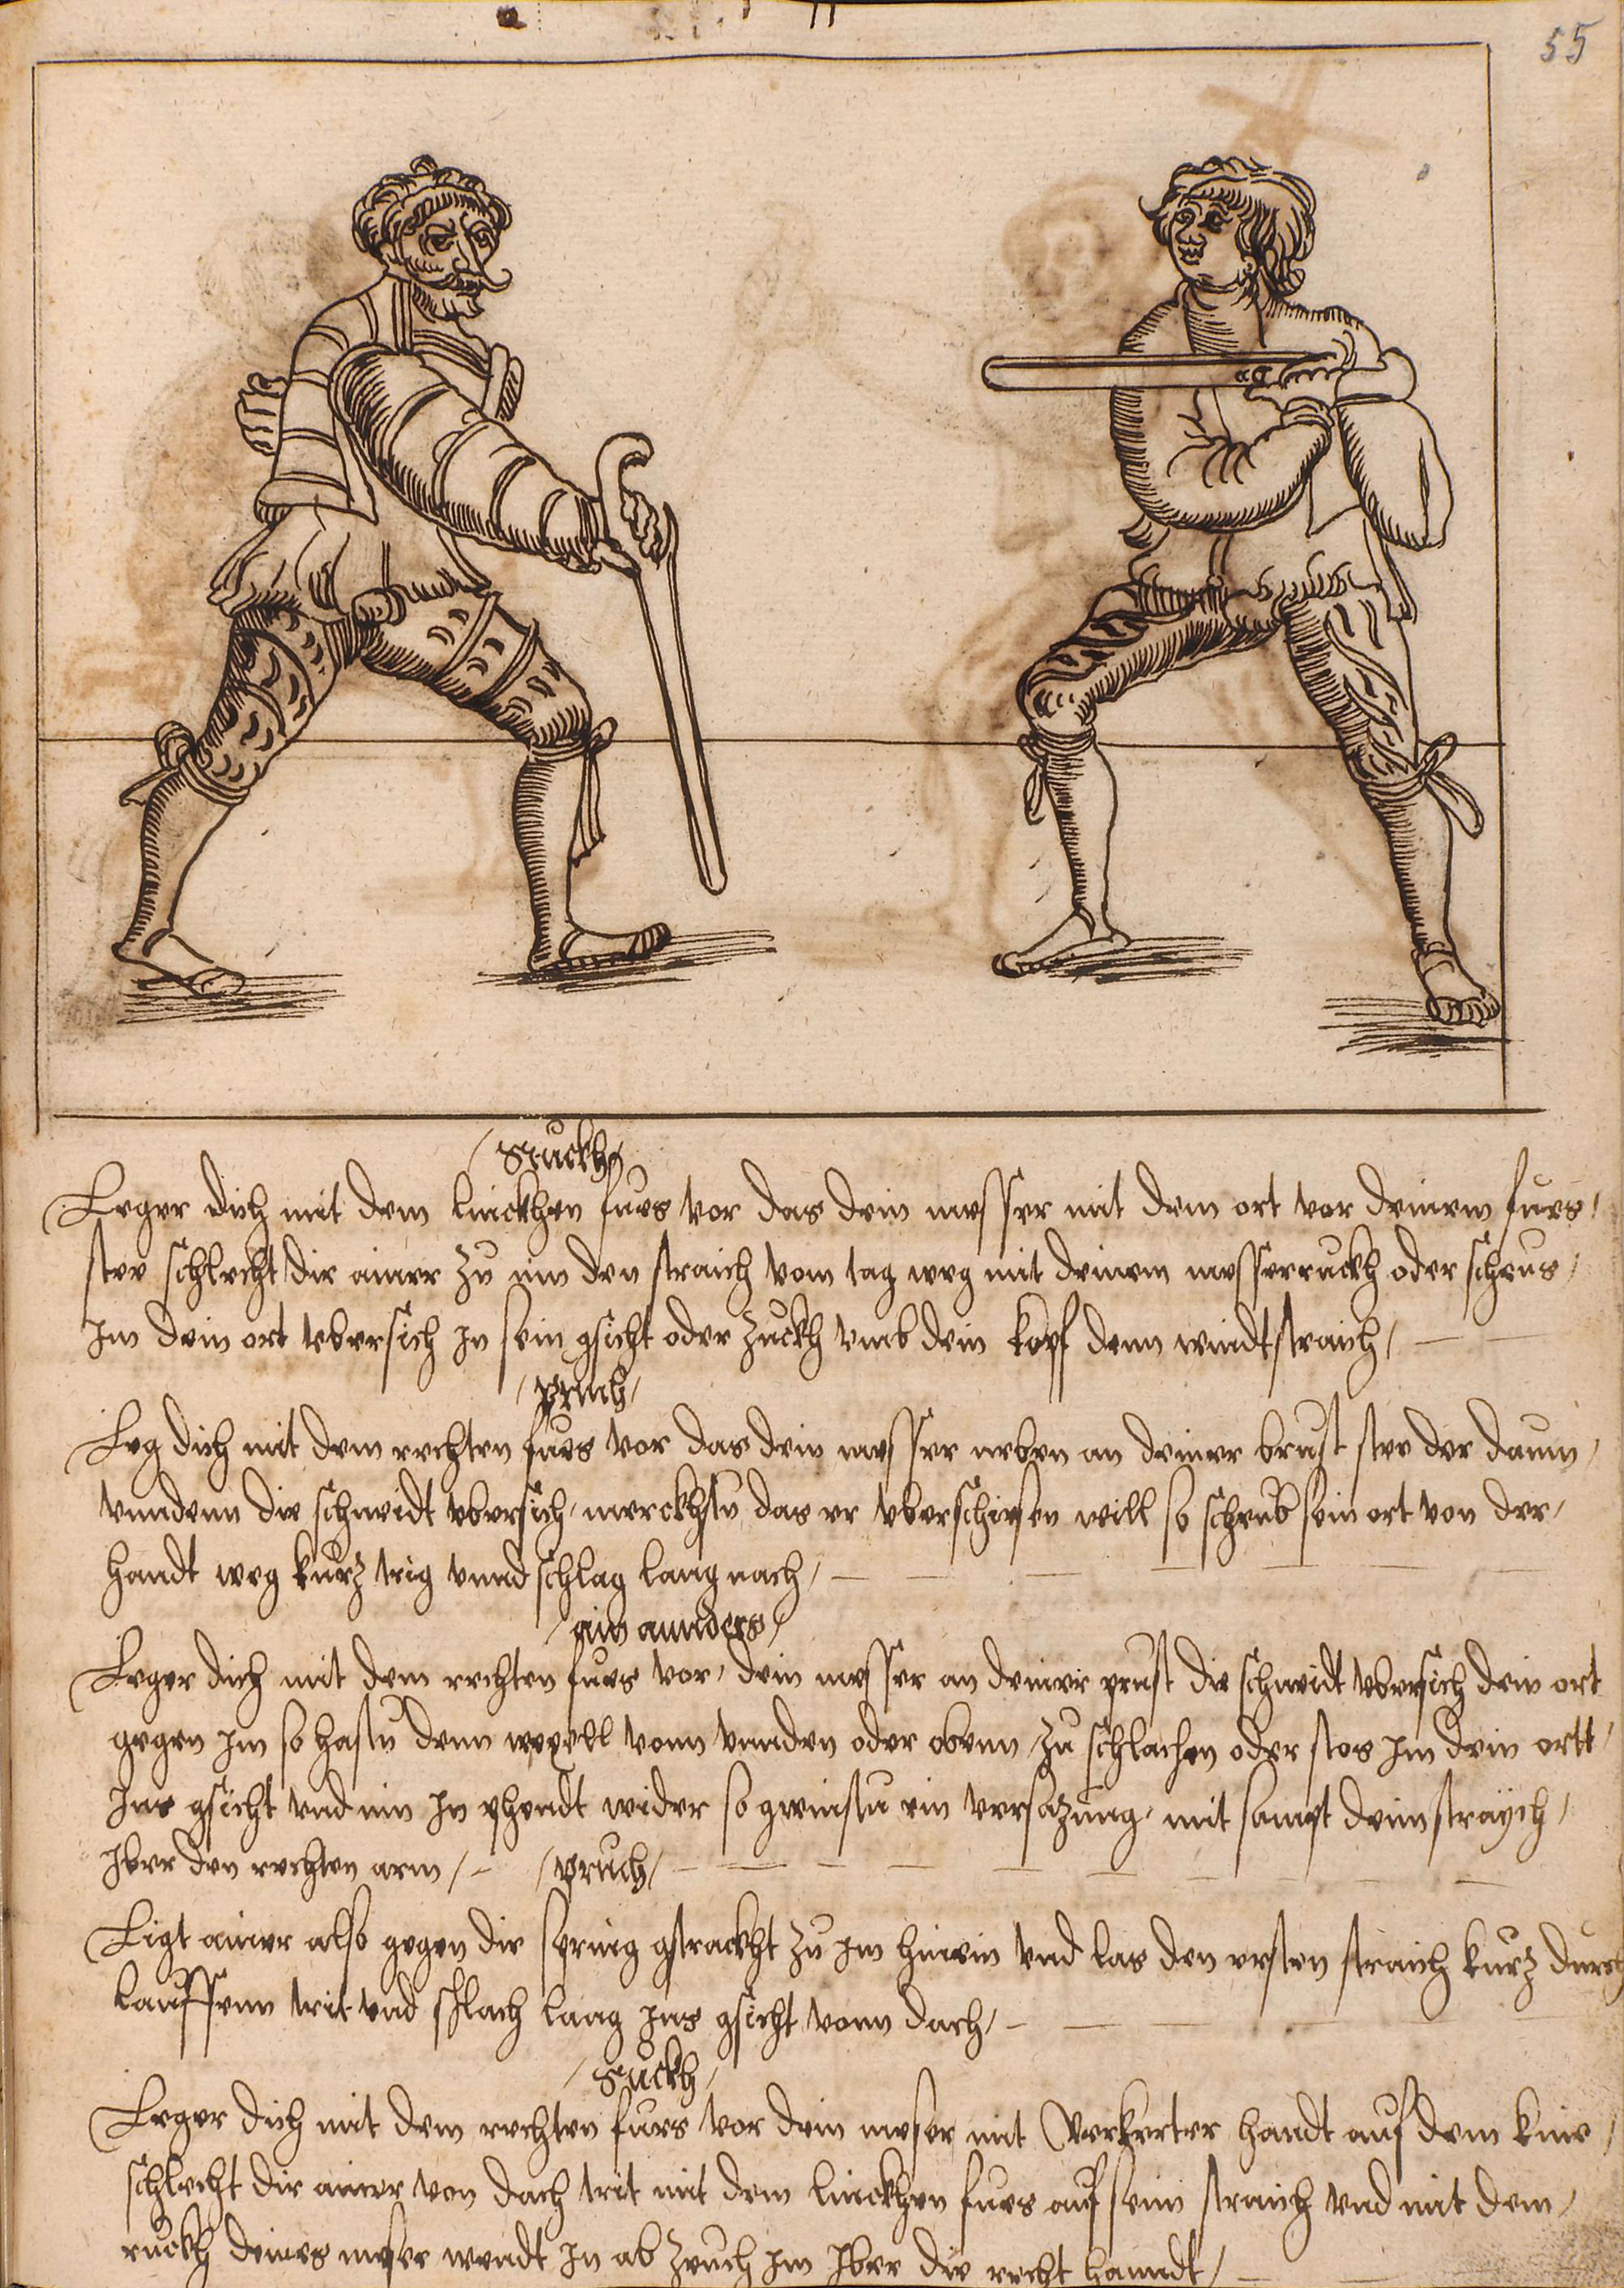 55
stuckh
Leger dich mit dem linckhen fues vor das dein messer mit dem ort vor deinem fues
stee schlecht dir ainer zu nim den straich vom tag weg mit deinem messerruckh oder scheus
Im dein ort vbersich jn sein gsicht oder zuckh vmb dein kopf denn windtstraich
pruch
Leg dich mit dem rechten fues vor das dein messer neben an deiner brust stee der daum
vnndenn die schneidt vbersich merckhstu das er vberschiesen will so scheub sein ort von der
handt weg kurz trig vnnd schlag lang nach
ain annders
Leger dich mit dem rechten fues vor dein messer an deiner prust die schneidt vbersich dein ort
gegen jm so hastu denn wexell vonn vnnden oder obenn zu schlachen oder stos jm dein ortt
Ins gsicht vnd nim jn phendt wider so gwinstu ein versazung mit sampt deim straych
Iber den rechten arm pruch
Ligt ainer also gegen dir spring gstrackht zu jm hinein vnd las den ersten straich kurz durch
lauffenn trit vnd schlach lang jns gsicht vonn dach
stuckh
Leger dich mit dem rechten fues vor dein meser mit verkerter handt auf dem knie
schlecht dir ainer von dach trit mit dem linckhen fues auf seim straich vnd mit dem
ruckh deines meser wendt jn ab zeuch jm Iber die recht hanndt